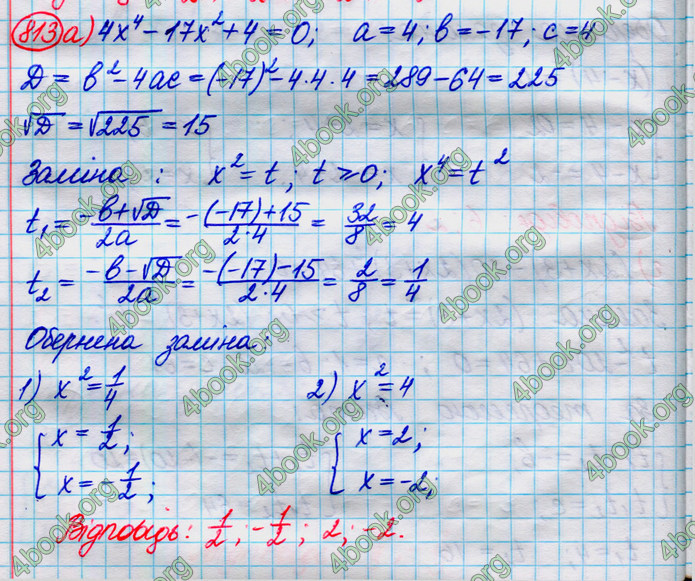 813 а) 4x⁴ – 17x² + 4 = 0; a = 4; b = –17; c = 4
D = b² – 4ac = (–17)² – 4·4·4 = 289 – 64 = 225
√D = √225 = 15
Заміна: x² = t; t ≥ 0; x⁴ = t²
t₁ = (–b+√D)/(2a) = (–(–17)+15)/(2·4) = 32/8 = 4
t₂ = (–b–√D)/(2a) = (–(–17)–15)/(2·4) = 2/8 = 1/4
Обернена заміна:
1) x² = 1/4 2) x² = 4
{ x = 1/2; { x = 2;
x = –1/2; x = –2;
Відповідь: 1/2; –1/2; 2; –2.
4book.org